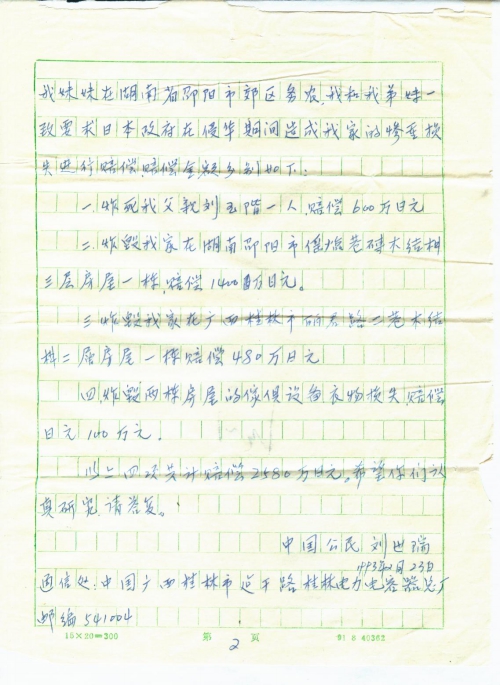 我妹妹在湖南省邵阳市郊区务农，我和我弟妹一
致要求日本政府在侵华期间造成我家的惨重损
失进行赔偿，赔偿金额分别如下：
一、炸死我父亲刘玉阶一人，赔偿600万日元
二、炸毁我家在湖南邵阳市 巷砖木结构
三层房屋一栋，赔偿1400万日元。
三、炸毁我家在广西桂林市 路二巷木结
构二层房屋一栋赔偿480万日元
四、炸毁两栋房屋的傢俱设备衣物损失，赔偿
日元100万元。
以上四项共计赔偿2580万日元。希望你们认
真研究，请答复。
中国公民 刘世瑞
1993年 月23日
通信处：中国广西桂林市 路桂林电力电容器总厂
邮编541004
15×20=300 第 2 页